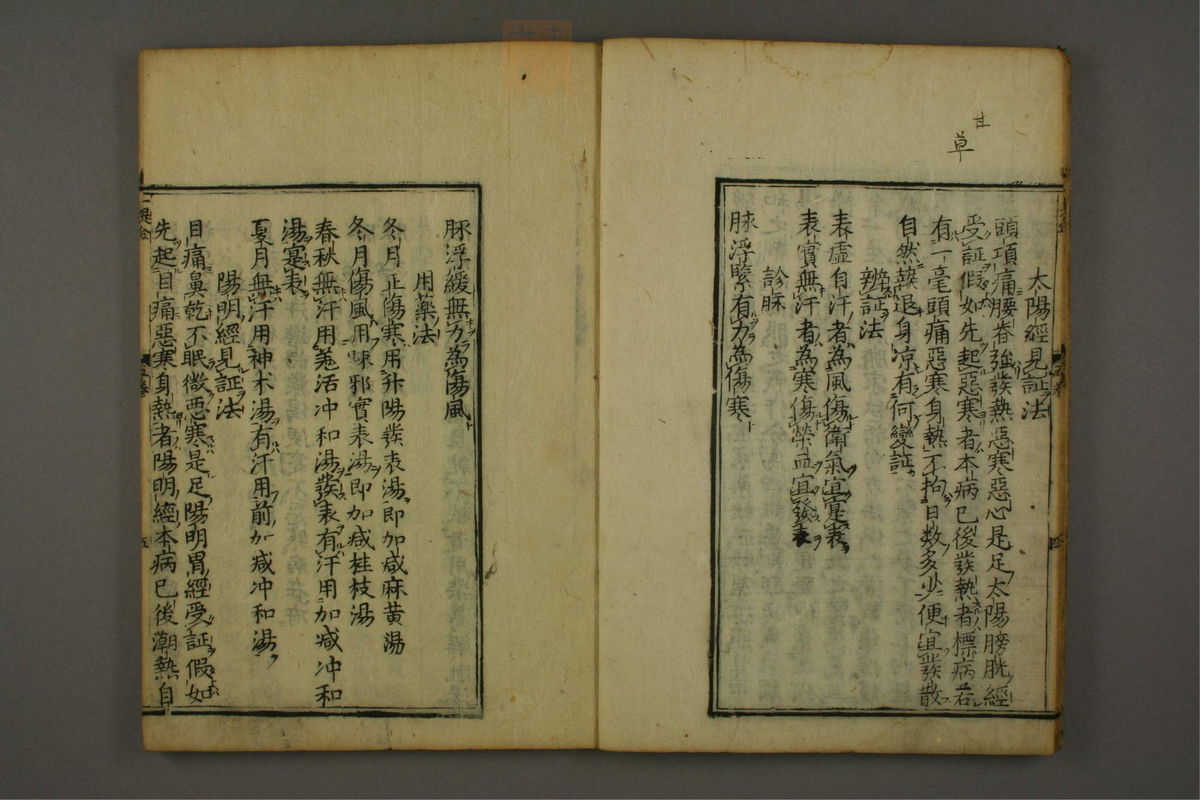 甘
草
太陽經見証法
頭項痛腰脊強發熱惡寒惡心是足太陽膀胱經
受証假如先起惡寒者本病已後發熱者標病若
有一毫頭痛惡寒身熱不拘日数多少便宜發散
自然熱退身凉有何變証
辨証法
表虛自汗者為風傷衛氣宜實表
表實無汗者為寒傷榮血宜發表
診脉
脉浮緊有力為傷寒
脉浮緩無力為傷風
用薬法
冬月正傷寒用升陽發表湯即加减麻黄湯
冬月傷風用疎邪實表湯即加减桂枝湯
春秋無汗用羗活冲和湯發表有汗用加减冲和
湯寔表
夏月無汗用神术湯有汗用前加减冲和湯
陽明經見証法
目痛鼻乾不眠微惡寒是足陽明胃經受証假如
先起目痛惡寒身熱者陽明經本病已後潮熱自